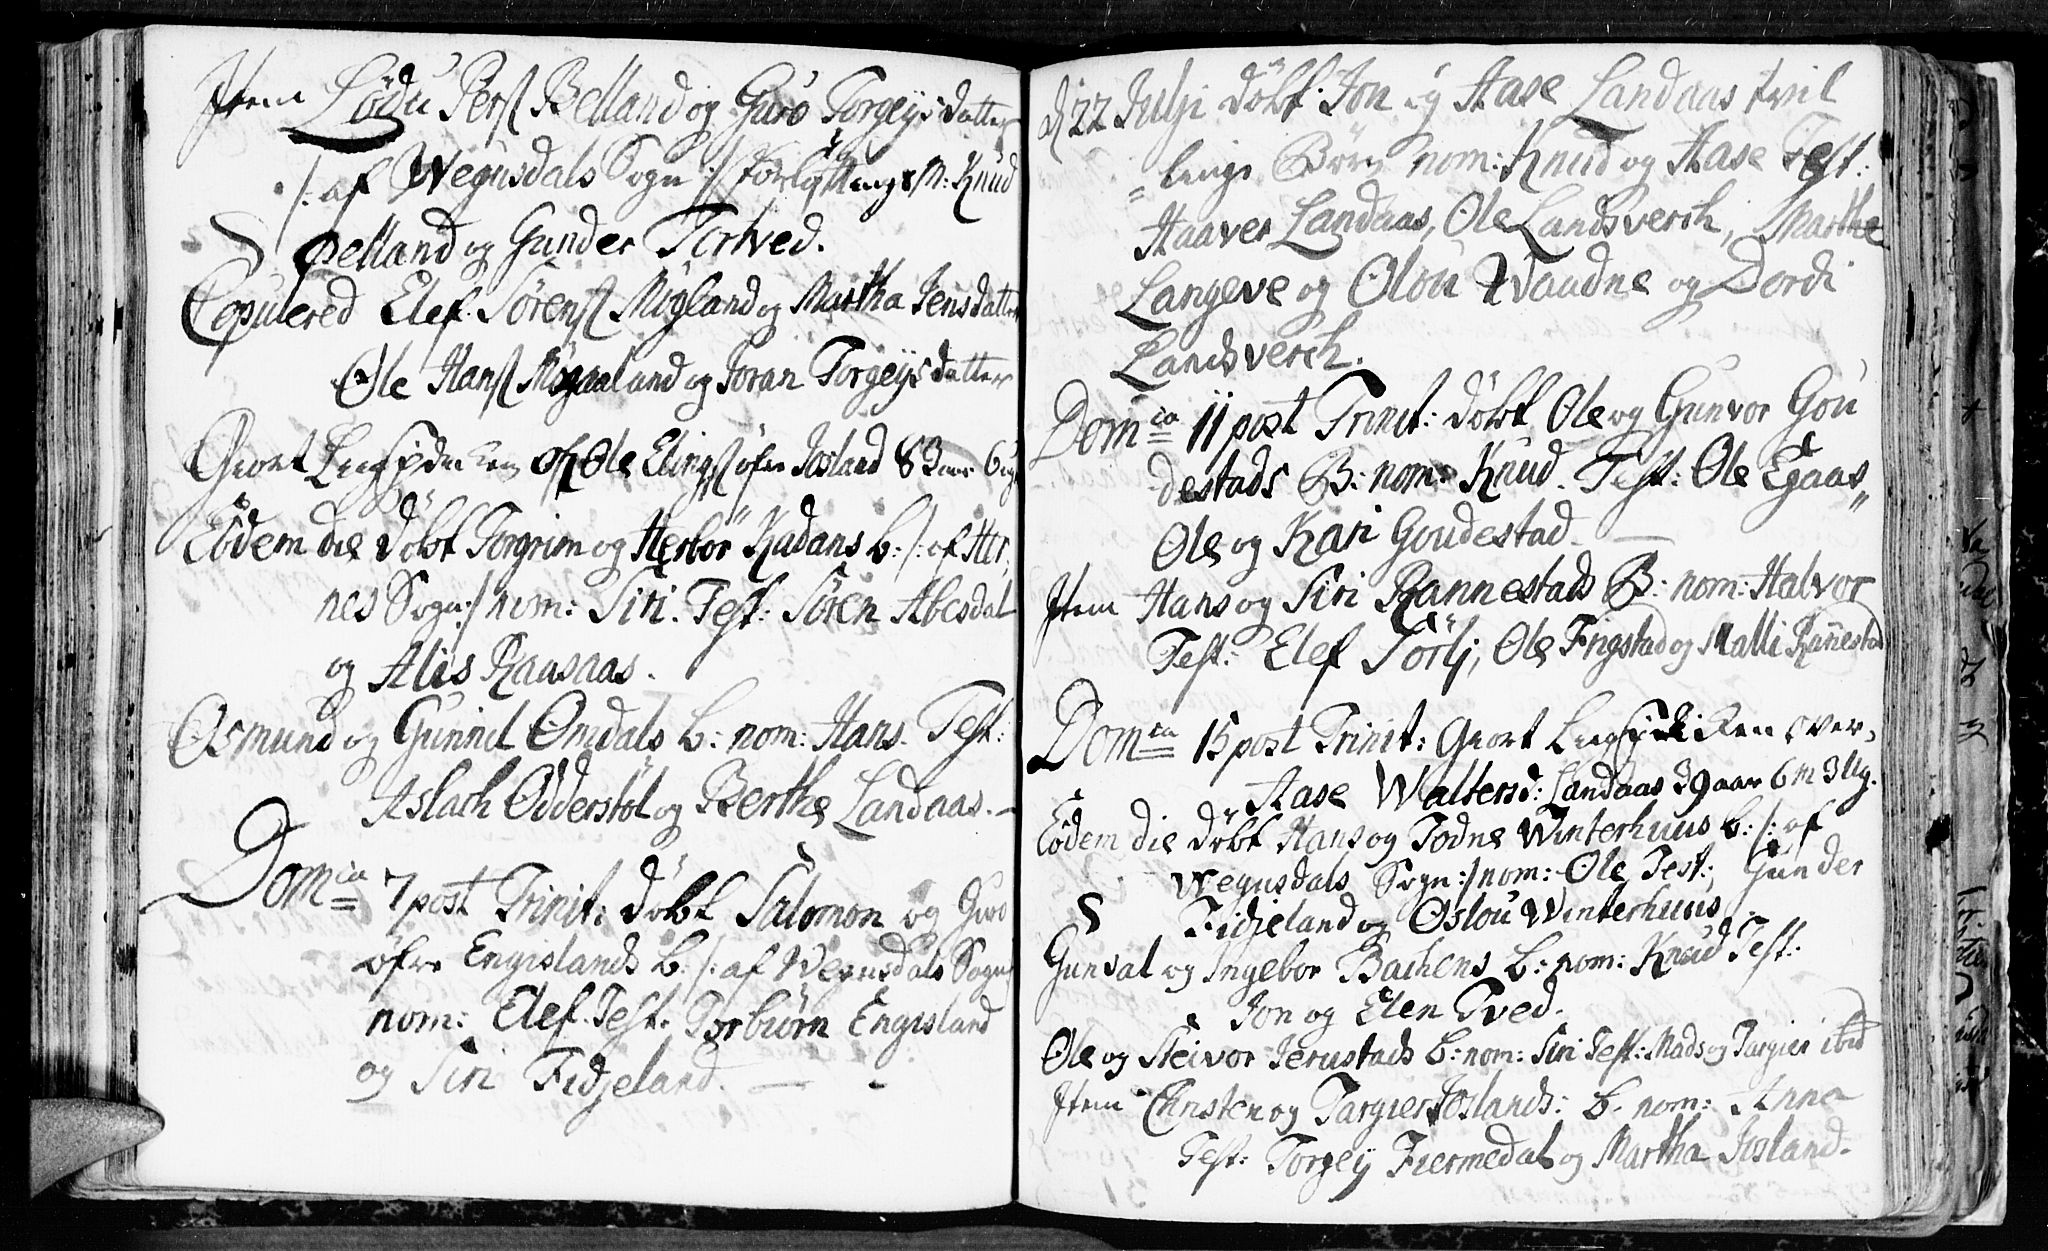 Item Lødu Persſ Belland og Guro Torgeys datter
/: af Wegusdals Sogn :/ Forlofvng: M: Knud
Belland og Gunder Tortved.
Copulered Elef Sörensſ Mögland og Martha Jensdatter
Ole Hansſ Mögaaland og Joran Torgeÿs datter
Giort Liig Prediken of Ole Elingsſ öfre Josland 83 aar 6 ug
Eödem die döbt Torgrim og Herbör Kadans b: /: af Her,
nes Sogn :/ nom: Siri. Test: Sören Abesdal
og Alis Raasaas.
Osmund og Gunnil Omdals b: nom: Hans. Test:
Aslach Odderstöl og Berthe Landaas. —
Dom ca 7 post Trinit: döbt Salomon og Guro
öfre Engislands b: /: af Vegusdals Sogn :/
nom: Elef. Test: Torbiörn Engisland
og Siri Fidjeland. —
d 22 Julji döbt Jon og Aase Landaas tvil
lings Börn nom: Knud og Aase Test:
Haaver Landaas, Ole Landsverch, Marthe
Langeve og Olou Waadne og Dordi
Landsverch.
Dom ca 11 post Trinit: döbt Ole og Gunvor Gou
destads B: nom: Knud. Test: Ole Egaas,
Ole og Kari Goudestad. —
Item Hans og Siri Rannestads B: nom: Halvor
Test: Elef Törlj, Ole Frigstad og Malli Rannestad
Dom ca 15 post Trinit: Giort Liig Prediken over
Aase Waltersd: Landaas 39 aar 6 m 3 Ug.
Eödem die döbt Hans og Todne Winterhuus b: /: af
Wegusdals Sogn :/ nom: Ole Test: Gunder
Fidjeland og Oslou Winterhuus
Gunsal og Ingebor Bachens b: nom: Knud Test:
Jon og Elen Tved.
Ole og Steivor Jerustads b: nom: Siri Test: Mads og Targier ibid
Item Christen og Targier Joslands: b. nom: Anna
Test: Torgeÿ Fiermedal og Martha Josland.